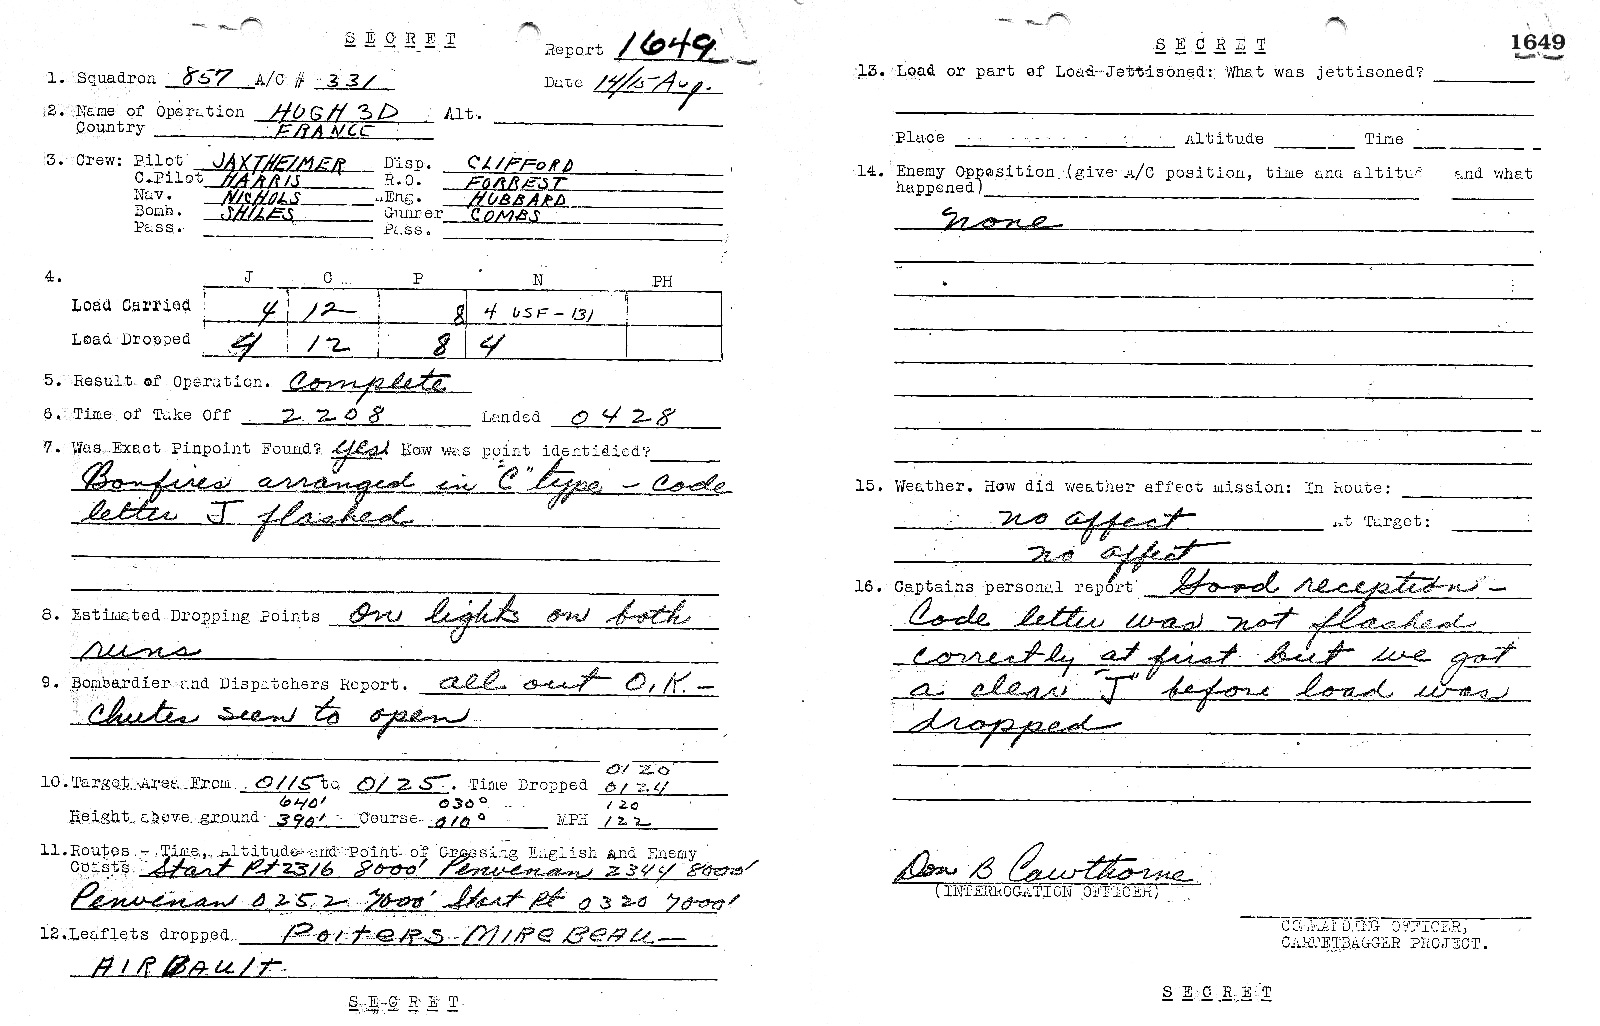 SECRET
Report 1649
1. Squadron 857 A/C # 331 Date 14/15 Aug.
2. Name of Operation HUGH 3D Alt.
Country FRANCE
3. Crew: Pilot JAXTHEIMER Disp. CLIFFORD
C.Pilot HARRIS R.O. FORREST
Nav. NICHOLS Eng. HUBBARD
Bomb. SHILES Gunner COMBS
Pass. Pass.
4. J C P N PH
Load Carried 4 12 8 4 USF-131
Load Dropped 4 12 8 4
5. Result of Operation. Complete
6. Time of Take Off 2208 Landed 0428
7. Was Exact Pinpoint Found? Yes! How was point identidied?
Bonfires arranged in "C" type - code
letter J flashed
8. Estimated Dropping Points On lights on both
runs
9. Bombardier and Dispatchers Report. all out O.K. -
Chutes seen to open
0120
10. Target Area From 0115 to 0125. Time Dropped 0124
640' 030° 120
Height above ground 390' Course 010° MPH 122
11. Routes - Time, Altitude and Point of Crossing English and Enemy
Coasts Start Pt 2316 8000' Penvenan 2344 8000'
Penvenan 0252 7000' Start Pt 0320 7000'
12. Leaflets dropped POITERS - MIREBEAU -
AIRBAULT
SECRET
SECRET
1649
13. Load or part of Load Jettisoned: What was jettisoned?
Place Altitude Time
14. Enemy Opposition (give A/C position, time and altitu and what
happened)
None
15. Weather. How did weather affect mission: In Route:
no affect At Target:
no affect
16. Captains personal report Good reception -
Code letter was not flashed
correctly at first but we got
a clear "J" before load was
dropped
Don B Cawthorne
(INTERROGATION OFFICER)
COMMANDING OFFICER,
CARPETBAGGER PROJECT.
SECRET